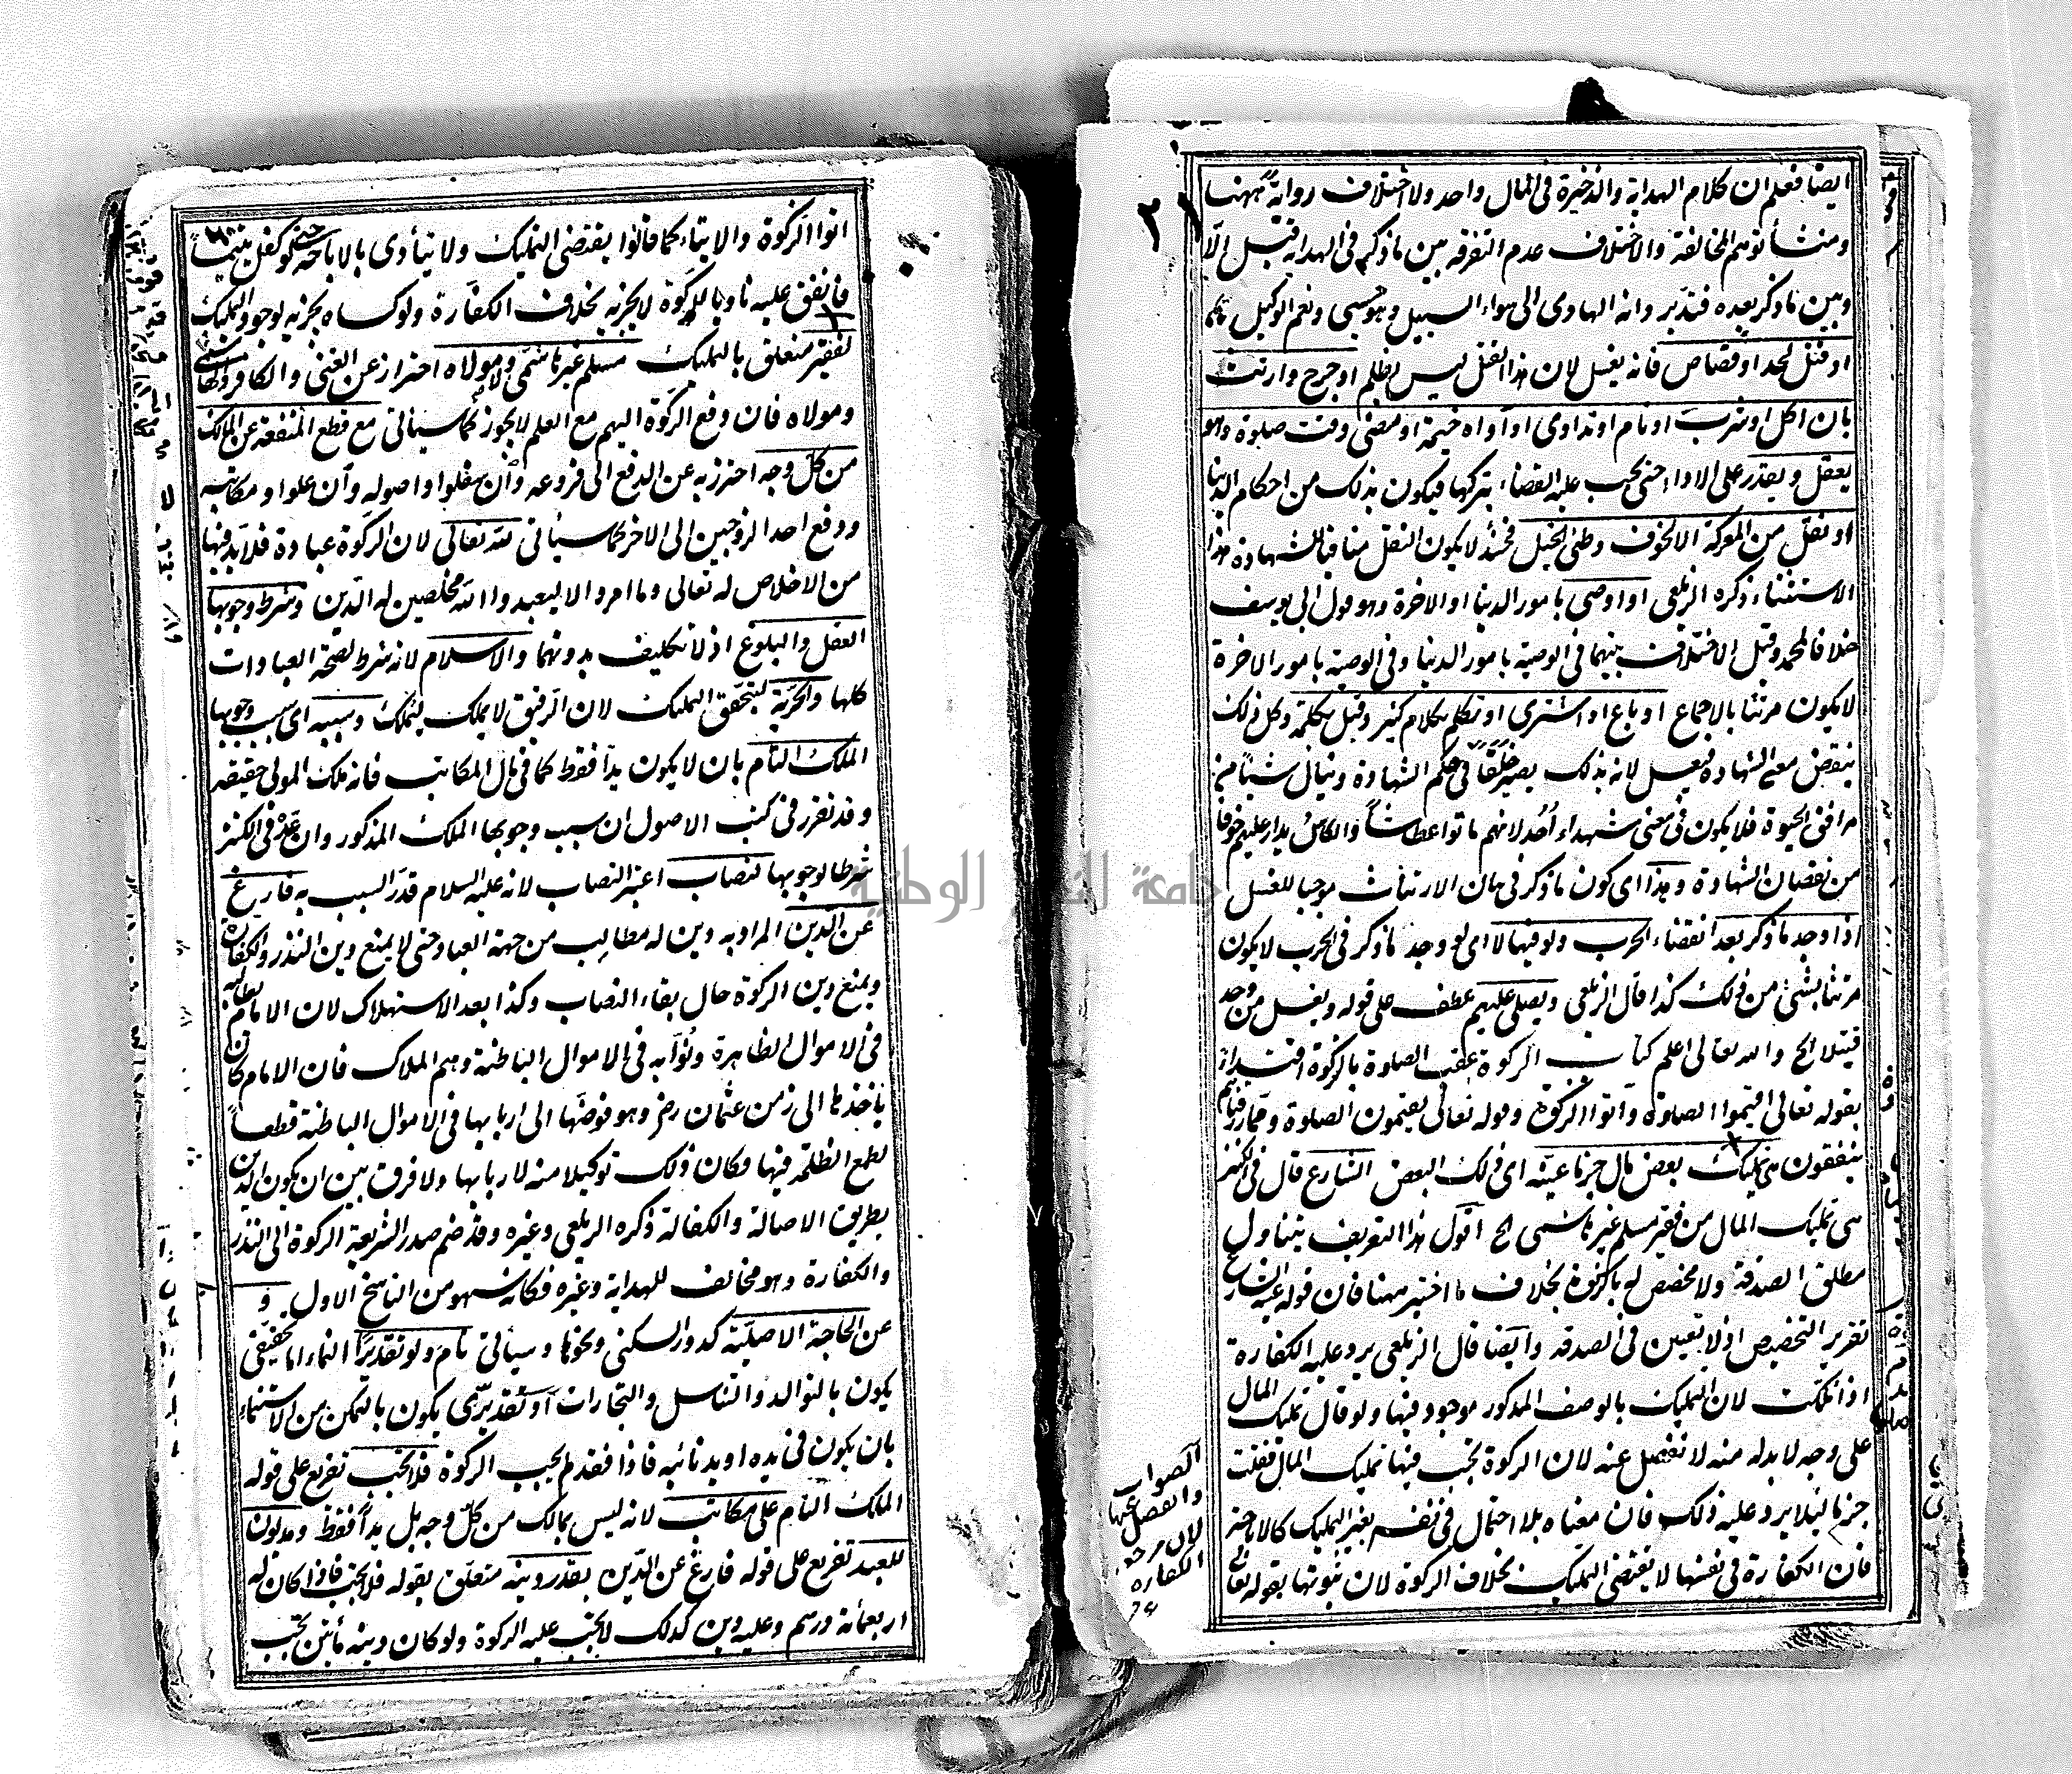 ايضا فعلم ان كلام الهداية والذخيرة في المال واحد ولا اختلاف رواية ههنا
ومنشأ توهم المخالفة والاختلاف عدم التفرقة بين ما ذكر في الهداية قبل الا
وبين ما ذكر بعده فتدبر والله الهادي الى سواء السبيل وهو حسبي ونعم الوكيل
او قتل لحد او قصاص فانه يغسل لان هذا القتل ليس بظلم او جرح وارتث
بان اكل او شرب او نام او تداوى او آواه خيمة او مضى وقت صلوة وهو
يعقل ويقدر على الاداء حتى يجب عليه القضاء بتركها فيكون بذلك من احكام الدنيا
او نقل من المعركة الا لخوف وطئ الخيل فحينئذ لا يكون النقل منافيا للشهادة هذا
الاستثناء ذكره الزيلعي او اوصى بامور الدنيا او الاخرة وهو قول ابي يوسف
خلافا لمحمد وقيل الاختلاف بينهما في الوصية بامور الدنيا وفي الوصية بامور الاخرة
لا يكون مرتثا بالاجماع او باع او اشترى او تكلم بكلام كثير وقيل بكلمة وكل ذلك
ينقض معنى الشهادة فيغسل لانه بذلك يصير خلقا في حكم الشهادة وينال شيئا من
مرافق الحيوة فلا يكون في معنى شهداء أحد لانهم ماتوا عطاشا والكاس يدار عليهم خوفا
من نقصان الشهادة وهذا اى كون ما ذكر في بيان الارتثاث موجبا للغسل
اذا وجد ما ذكر بعد انقضاء الحرب ولو فيها لا اى لو وجد ما ذكر في الحرب لا يكون
مرتثا بشئ من ذلك كذا قال الزيلعي ويصلى عليهم عطف على قوله ويغسل من وجد
قتيلا الخ والله تعالى اعلم كتاب الزكوة عقب الصلوة بالزكوة اقتداء
بقوله تعالى اقيموا الصلوة وآتوا الزكوة وقوله تعالى يقيمون الصلوة ومما رزقناهم
ينفقون هي تمليك بعض مال جزما عينه اى ذلك البعض الشارع قال في الكنز
هي تمليك المال من فقير مسلم غير هاشمي الخ اقول هذا التعريف يتناول
مطلق الصدقة ولا مخصص له بالزكوة بخلاف ما اختير ههنا فان قوله عينه الشارع
تقرير التخصيص اذ لا تعيين في الصدقة وايضا قال الزيلعي يرد عليه الكفارة
اذا ملكت لان التمليك بالوصف المذكور موجود فيها ولو قال تمليك المال
على وجه لا بد له منه لا نفصل عنه لان الزكوة تجب فيها تمليك المال فقلت
جزما لئلا يرد عليه ذلك فان معناه بلا احتمال في نفسه بغير التمليك كالاباحة
فان الكفارة في نفسها لا يقتضي التمليك بخلاف الزكوة لان ثبوتها بقوله تعالى
الصواب
والفصل عنها
الكفاره
اتوا الزكوة والايتاء كما قالوا يقتضي التمليك ولا يتأدى بالاباحة حتى لو كفل يتيما
فانفق عليه ناويا للزكوة لا يجزيه بخلاف الكفارة ولو كساه يجزيه لوجود التمليك
لفقير متعلق بالتمليك مسلم غير هاشمي ولا مولاه احتراز عن الغني والكافر والهاشمي
ومولاه فان دفع الزكوة اليهم مع العلم لا يجوز كما سيأتي مع قطع المنفعة عن المالك
من كل وجه احترز به عن الدفع الى فروعه وان سفلوا واصوله وان علوا ومكاتبه
ودفع احد الزوجين الى الاخر كما سيأتي لله تعالى لان الزكوة عبادة فلا بد فيها
من الاخلاص له تعالى وما امروا الا ليعبدوا الله مخلصين له الدين وشرط وجوبها
العقل والبلوغ اذ لا تكليف بدونهما والاسلام لانه شرط لصحة العبادات
كلها والحرية ليتحقق التمليك لان الرقيق لا يملك ليملك وسببه اى سبب وجوبها
الملك التام بان لا يكون يدا فقط كما في مال المكاتب فانه ملك المولى حقيقة
وقد تقرر في كتب الاصول ان سبب وجوبها الملك المذكور وان عده في الكنز
شرطا لوجوبها لنصاب اعتبر النصاب لانه عليه السلام قدر السبب به فارغ
عن الدين المراد به دين له مطالب من جهة العباد حتى لا يمنع دين النذر والكفارة
ويمنع دين الزكوة حال بقاء النصاب وكذا بعد الاستهلاك لان الامام يطالبه
في الاموال الظاهرة ونوابه في الاموال الباطنة وهم الملاك فان الامام كان
ياخذها الى زمن عثمان رض وهو فوضها الى اربابها في الاموال الباطنة قطعا
لطمع الظلمة فيها فكان ذلك توكيلا منه لاربابها ولا فرق بين ان يكون الدين
بطريق الاصالة والكفالة ذكره الزيلعي وغيره وقد ضم صدر الشريعة الزكوة الى النذر
والكفارة وهو مخالف للهداية وغيره فكانه سهو من الناسخ الاول و
عن الحاجة الاصلية كدور السكنى ونحوها وسيأتي نام ولو تقديرا النماء اما حقيقي
يكون بالتوالد والتناسل والتجارات او تقديري يكون بالتمكن من الاستنماء
بان يكون في يده او يد نائبه فاذا فقد لم يجب الزكوة فلا تجب تفريع على قوله
الملك التام على مكاتب لانه ليس بمالك من كل وجه بل يدا فقط ومديون
للعبد تفريع على قوله فارغ عن الدين بقدر دينه متعلق بقوله فلا تجب فاذا كان له
اربعمائة درهم وعليه دين كذلك لا تجب عليه الزكوة ولو كان دينه مأتين تجب
جامعة النجاح الوطنية